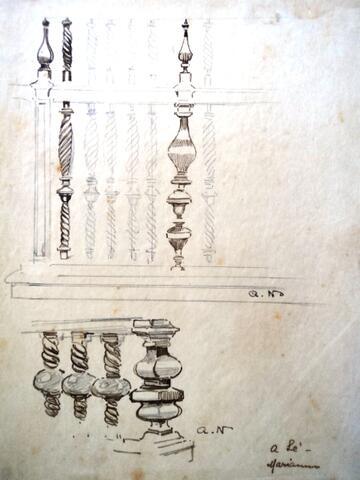 A. N
A. N
a Zé -
Marianno